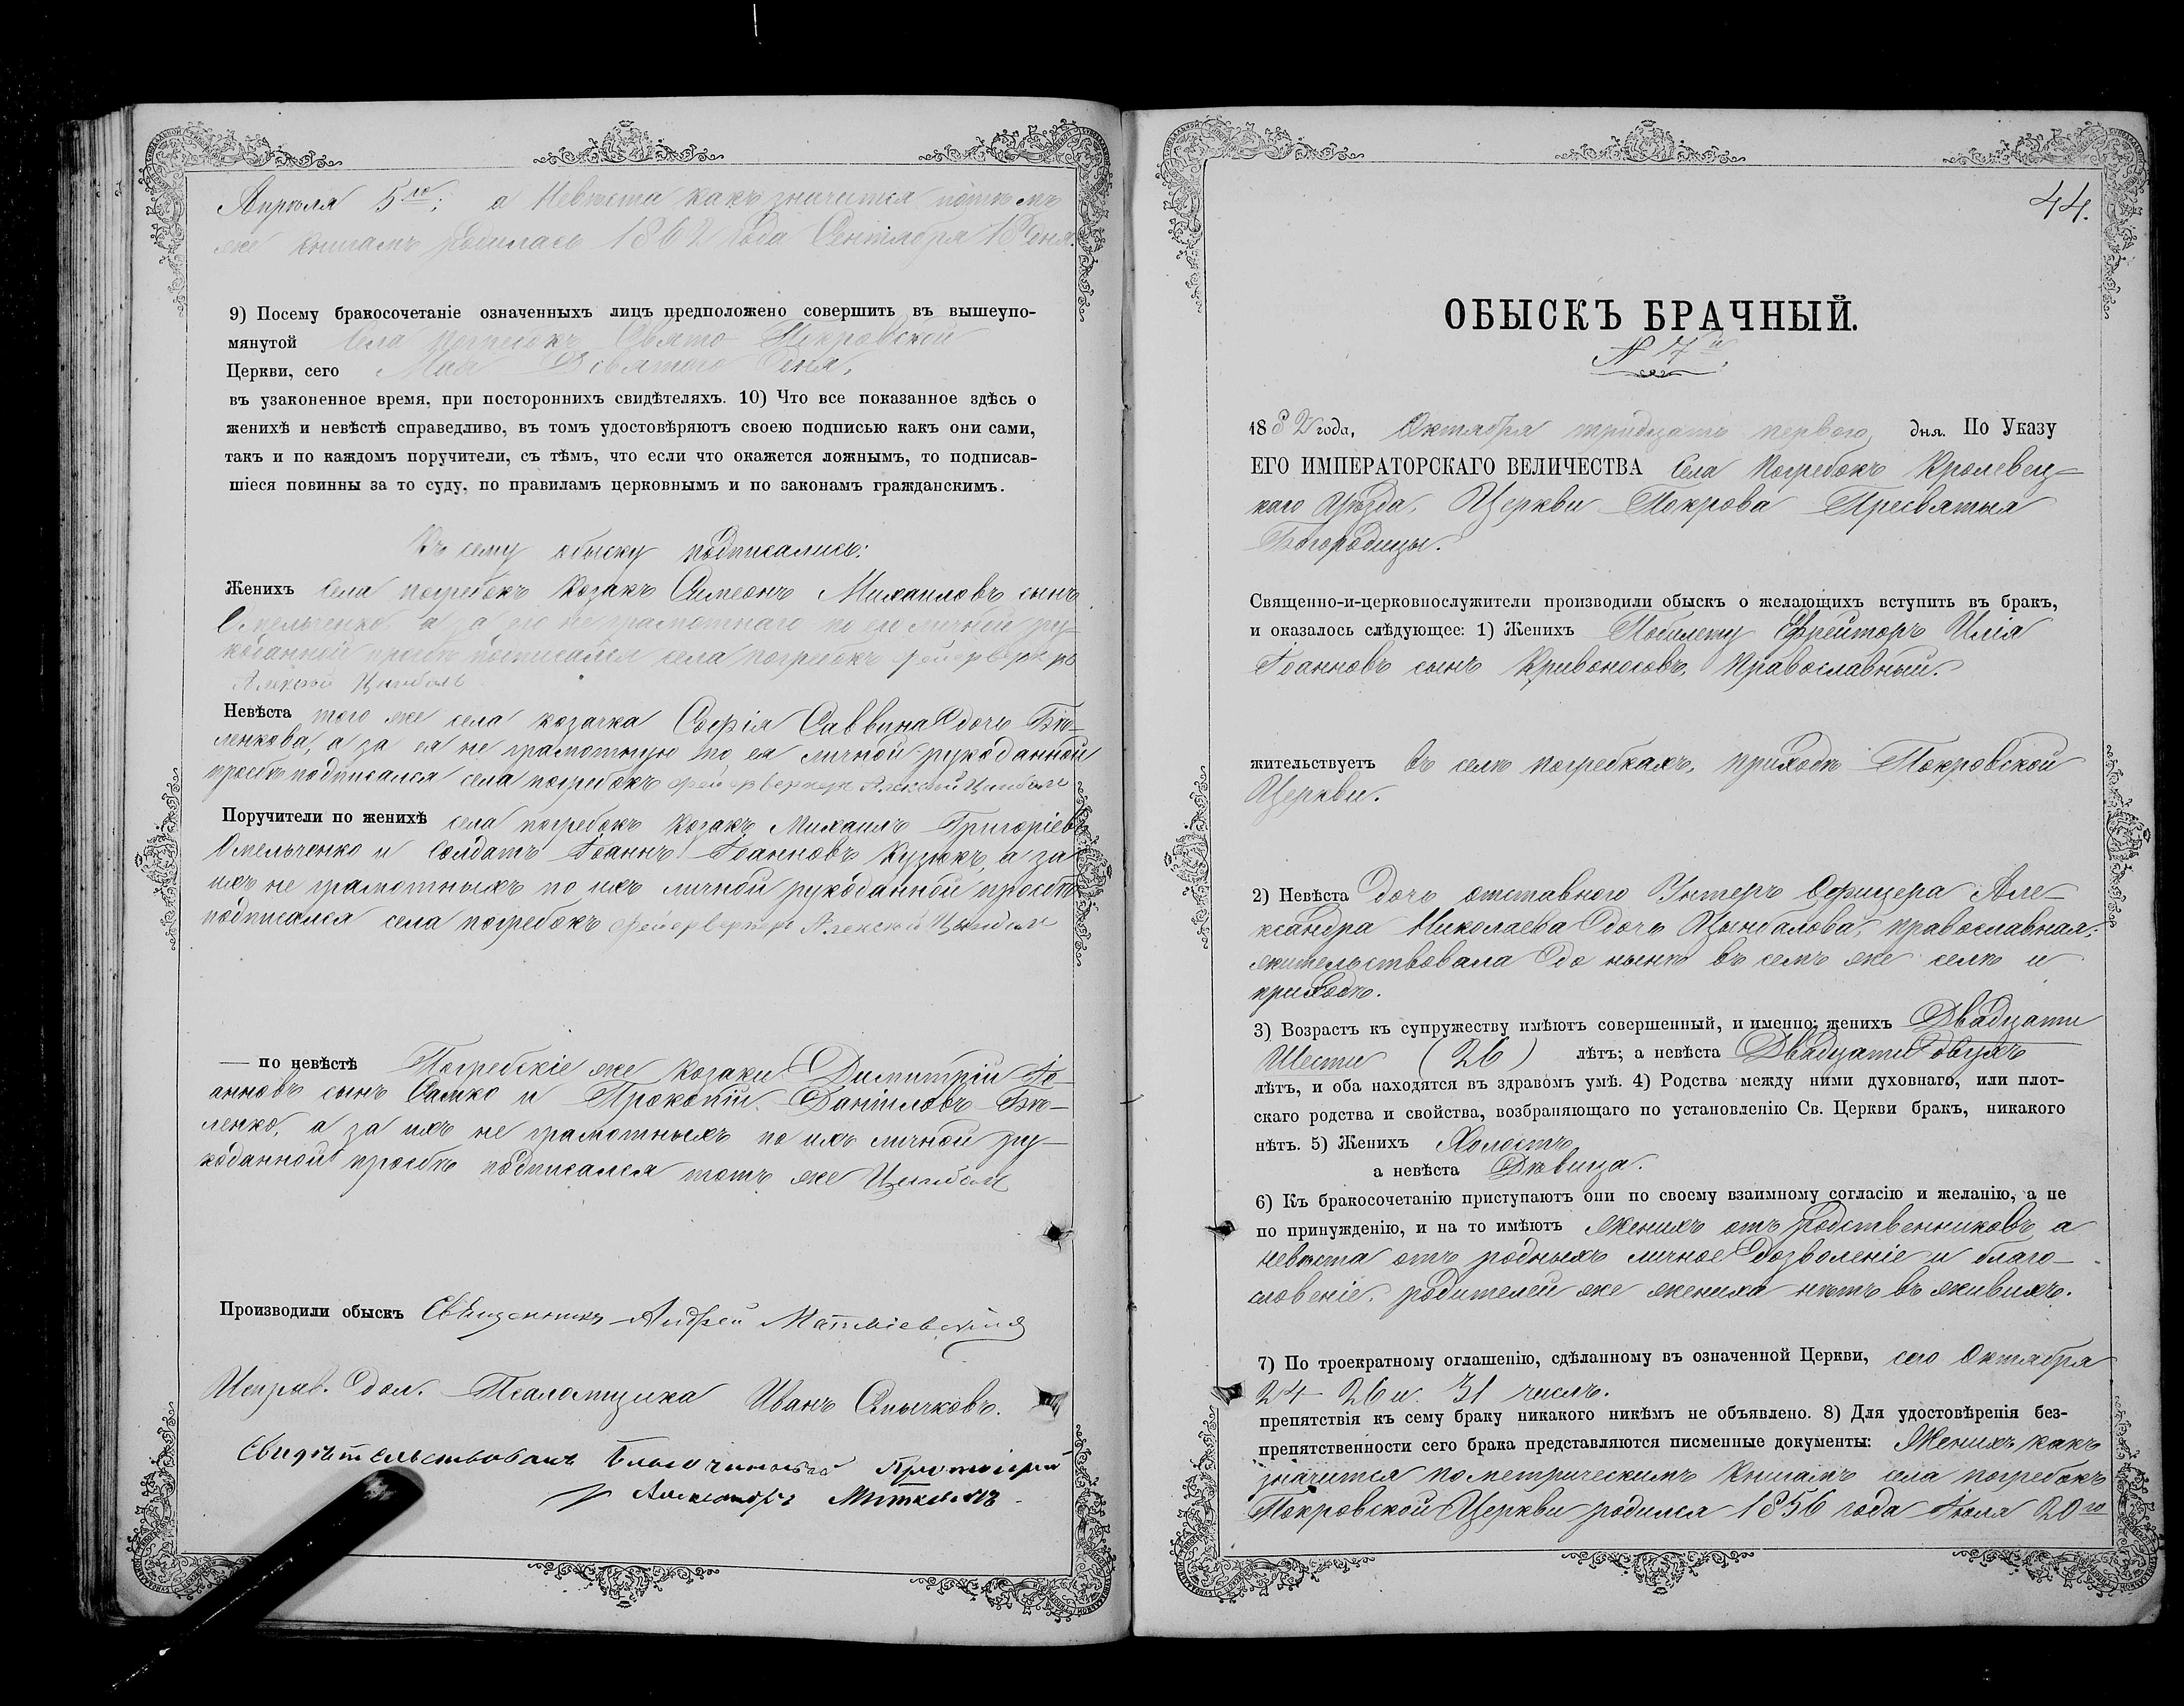 Апрѣля 5го; а Невѣста какъ значится по тѣмъ
же книгамъ родилась 1862 года Сентября 18 дня.
9) Посему бракосочетаніе означенныхъ лицъ предположено совершить въ вышеупо-
мянутой Села Погребокъ Свято-Покровской
Церкви, сего Мая Девятого дня,
въ узаконенное время, при постороннихъ свидѣтеляхъ. 10) Что все показанное здѣсь о
женихѣ и невѣстѣ справедливо, въ томъ удостовѣряютъ своею подписью какъ они сами,
такъ и по каждомъ поручители, съ тѣмъ, что если что окажется ложнымъ, то подписав-
шіеся повинны за то суду, по правиламъ церковнымъ и по законамъ гражданскимъ.
Къ сему обыску подписались:
Женихъ села погребокъ Козакъ Симеонъ Михаиловъ сынъ
Омельченко, а за его не грамотнаго по его личной ру-
коданной прозбѣ подписался села погребокъ фейерверкеръ
Алексѣй Цимбалъ
Невѣста того же села козачка Софія Саввина дочь Бѣ-
ленкова, а за ея не грамотную по ея личной рукоданной
прозбѣ подписался села погребокъ фейерверкеръ Алексѣй Цимбалъ
Поручители по женихѣ села погребокъ Козакъ Михаилъ Григоріевъ
Омельченко и Солдатъ Іоаннъ Іоанновъ Кузюкъ, а за
ихъ не грамотныхъ по ихъ личной рукоданной прозбѣ
подписался села погребокъ фейерверкеръ Алексѣй Цимбалъ
— по невѣстѣ Погребскіе же Козаки Димитрій Іо-
анновъ сынъ Самко и Прокопій Даніиловъ Бѣ-
ленко, а за ихъ не грамотныхъ по ихъ личной ру-
коданной прозбѣ подписался тотъ же Цимбалъ
Производили обыскъ Священникъ Андрей
Исправ. дол. Псаломщика Иванъ Смычковъ.
Свидѣтельствовалъ Благочинный Протоіерей
Александръ
44.
ОБЫСКЪ БРАЧНЫЙ.
№ 7й
1882 года, Октября тридцать первого, дня. По Указу
ЕГО ИМПЕРАТОРСКАГО ВЕЛИЧЕСТВА Села Погребокъ Кролевец-
каго Уѣзда, Церкви Покрова Пресвятыя
Богородицы.
Священно-и-церковнослужители производили обыскъ о желающихъ вступить въ бракъ,
и оказалось слѣдующее: 1) Женихъ Побилету Ефрейторъ Илія
Іоанновъ сынъ Кривоносовъ, Православный.
жительствуетъ въ селѣ погребкахъ, приходѣ Покровской
Церкви.
2) Невѣста дочь отставного Унтеръ Офицера Але-
ксандра Николаева дочь Цымбалова, православная,
жительствовала до нынѣ въ семъ же селѣ и
приходѣ.
3) Возрастъ къ супружеству имѣютъ совершенный, и именно; женихъ Двадцати
Шести (26) лѣтъ; а невѣста Двадцати двухъ
лѣтъ, и оба находятся въ здравомъ умѣ. 4) Родства между ними духовнаго, или плот-
скаго родства и свойства, возбраняющаго по установленію Св. Церкви бракъ, никакого
нѣтъ. 5) Женихъ Холостъ,
а невѣста Дѣвица.
6) Къ бракосочетанію приступаютъ они по своему взаимному согласію и желанію, а не
по принужденію, и на то имѣютъ Женихъ отъ родственниковъ, а
невѣста отъ родныхъ личное дозволеніе и благо-
словеніе, родителей же жениха нѣтъ въ живыхъ.
7) По троекратному оглашенію, сдѣланному въ означенной Церкви, сего Октября
24 26 и 31 числъ.
препятствія къ сему браку никакого никѣмъ не объявлено. 8) Для удостовѣренія без-
препятственности сего брака представляются писменные документы: Женихъ какъ
значится по метрическимъ Книгамъ села погребокъ
Покровской Церкви родился 1856 года Іюля 20го